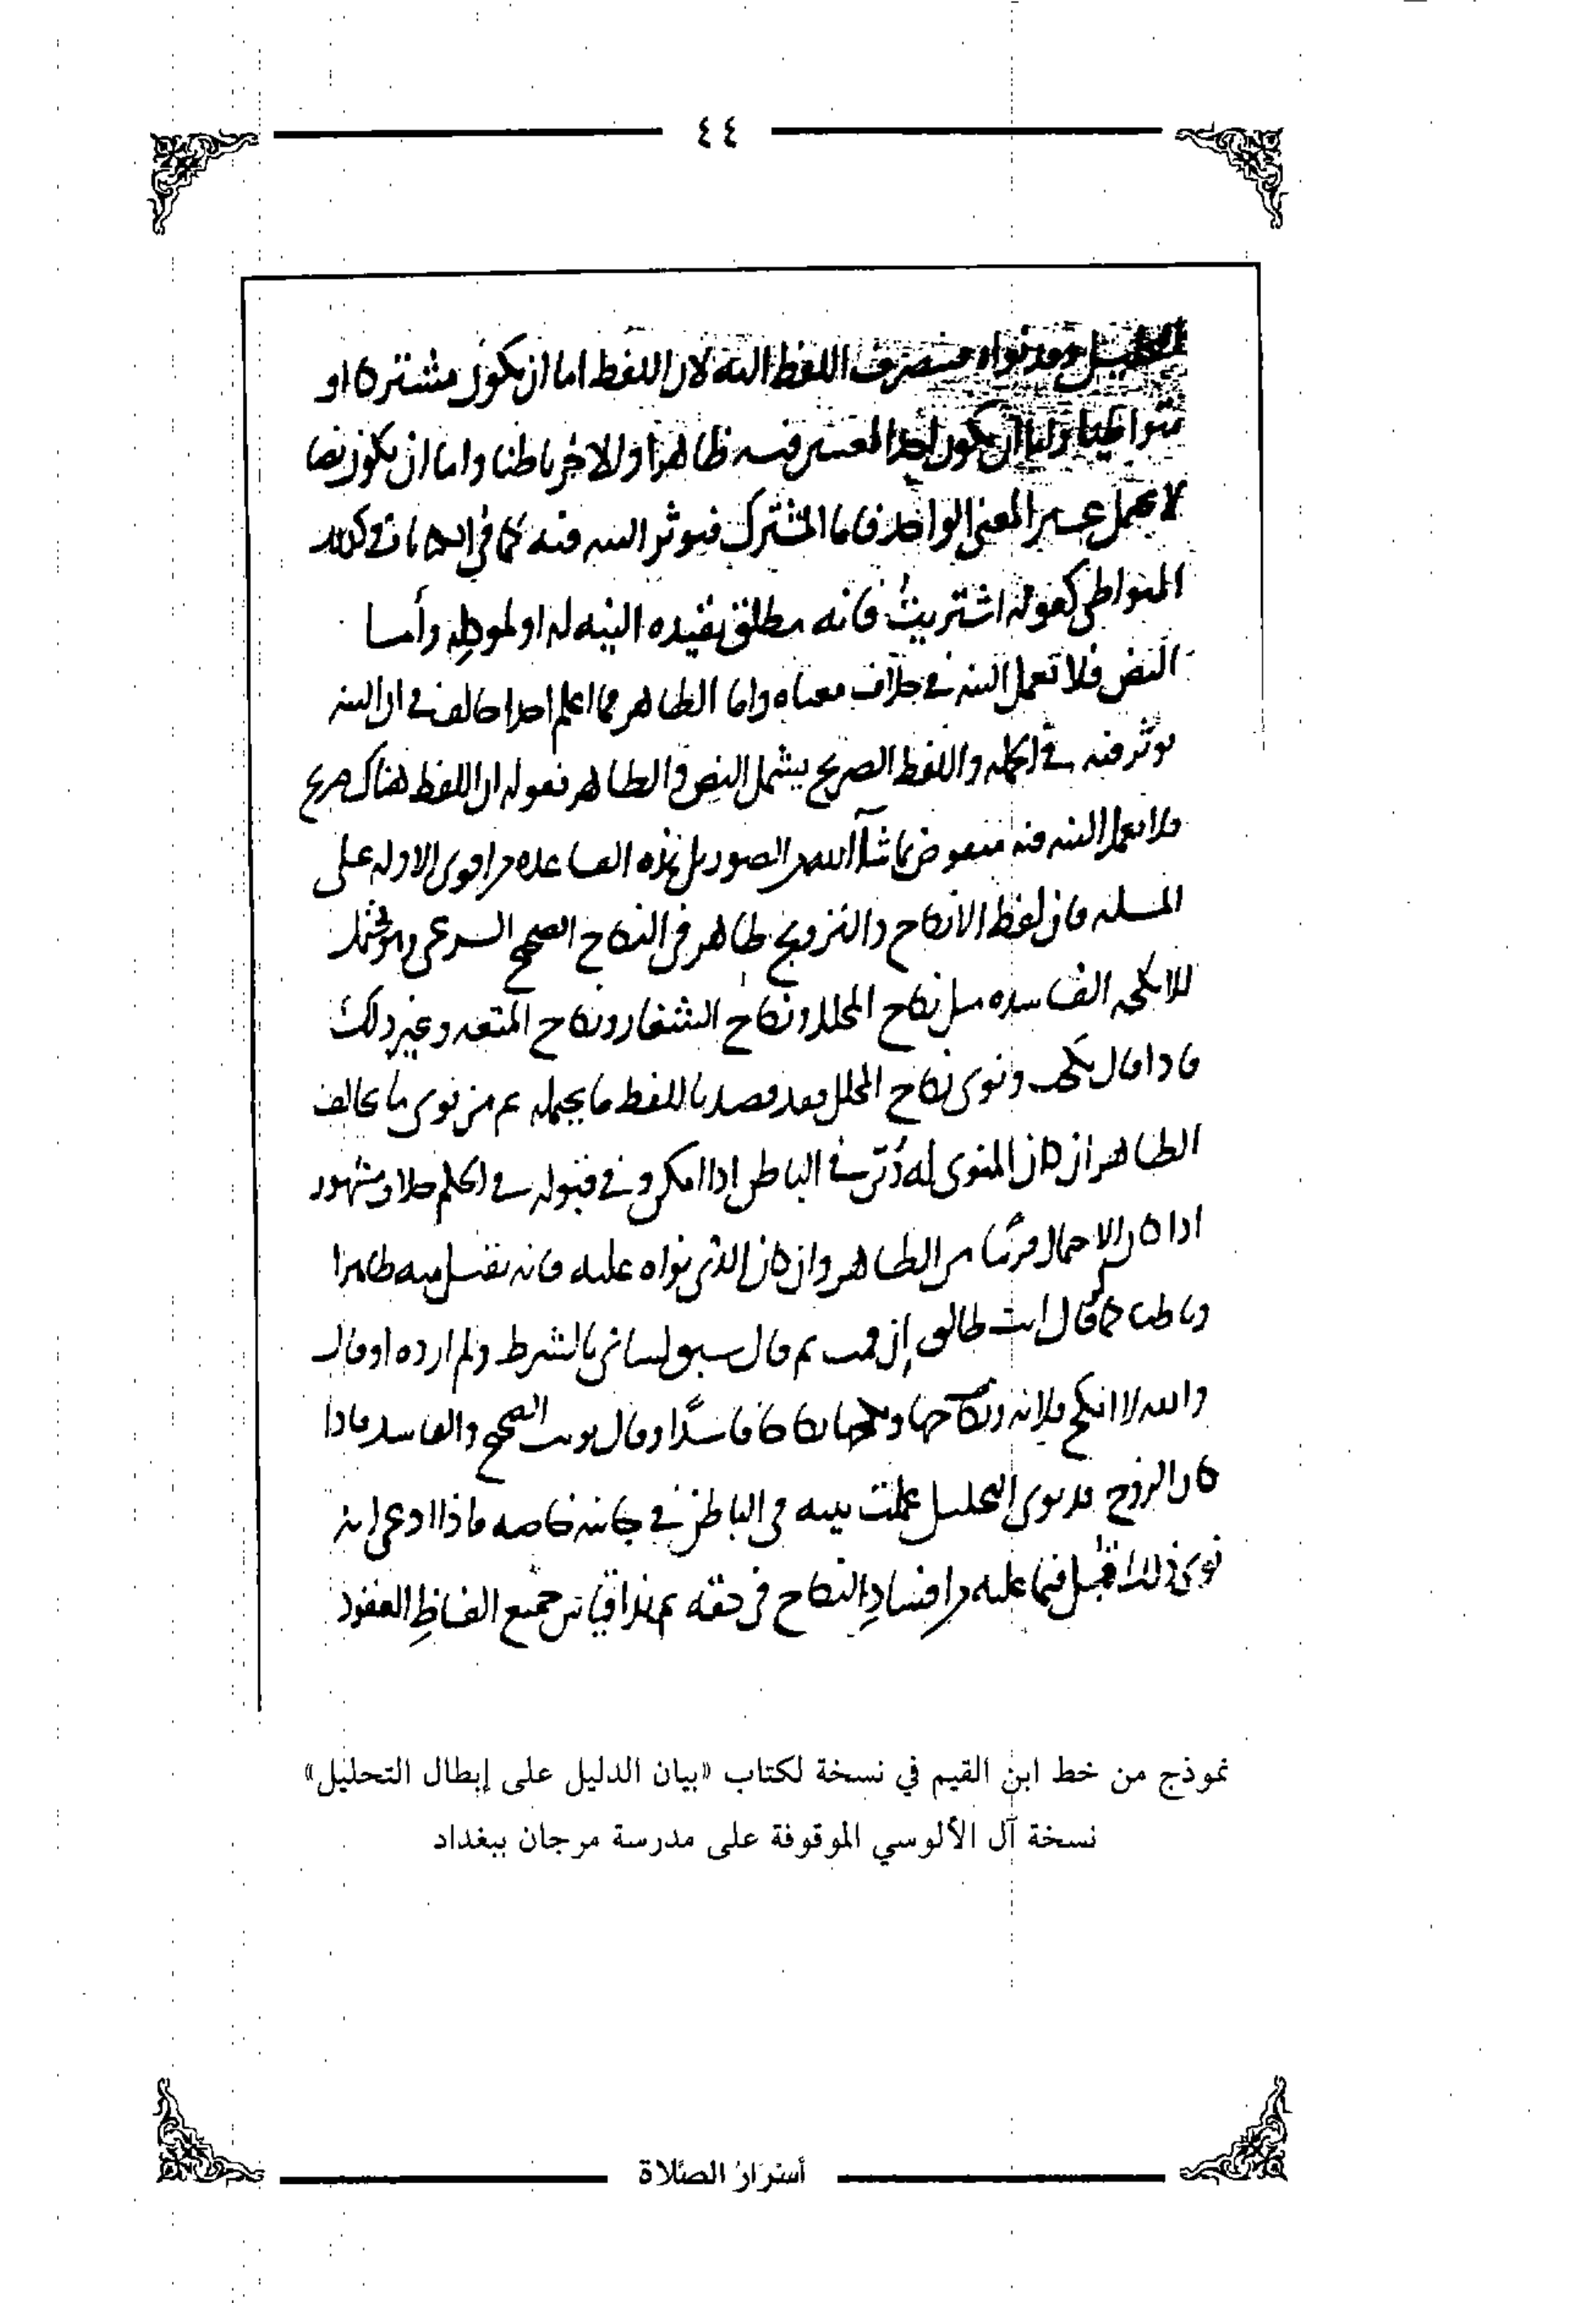 ٤٤
فينصرف اللفظ اليه لان اللفظ اما ان يكون مشتركا او
متواطيا واما ان يكون احد المعنيين فيه ظاهرا وللاخر باطنا واما ان يكون نصا
لا يحتمل غير المعنى الواحد فاما المشترك فيوثر النيه فيه كما في
المتواطي كقوله اشتريت فانه مطلق تقيده النيه له او لموكله واما
النص فلا تعمل النيه في خلاف معناه واما الظاهر فما اعلم احدا خالف في ان النيه
توثر فيه في الجمله واللفظ الصريح يشمل النص والظاهر فقوله ان اللفظ هناك صريح
فلا تعمل النيه فيه منقوض بما شآ الله من الصور بل هذه القاعده من اقوى الادله على
المسله فان لفظ الانكاح والتزويج ظاهر في النكاح الصحيح الشرعي وهو محتمل
للانكحه الفاسده مثل نكاح المحلل ونكاح الشغار ونكاح المتعه وغير ذلك
فاذا قال نكحت ونوى نكاح المحلل فقد قصد باللفظ ما يحتمله ثم من نوى ما يخالف
الظاهر ان كان المنوى له دُيّن في الباطن اذا امكن وفي قبوله في الحكم خلاف مشهور
اذا كان الاحتمال قريبا من الظاهر وان كان الذي نواه عليه فانه يقبل منه ظاهرا
وباطنا كما لو قال انت طالق إن قمت ثم قال سبق لساني بالشرط ولم ارده او قال
والله لا انكح فلانه ونكاحها نكاحا فاسدًا وقال نويت الصحيح والفاسد فاذا
كان الزوج قد نوى التحليل عملت نيته في الباطن في جانبه خاصه فاذا ادعى انه
نوى ذلك قُبل فيما عليه من افسادِ النكاح في حقه ثم هذا قياس جميع الفاظِ العقود
نموذج من خط ابن القيم في نسخة لكتاب «بيان الدليل على إبطال التحليل»
نسخة آل الألوسي الموقوفة على مدرسة مرجان ببغداد
أسرار الصلاة